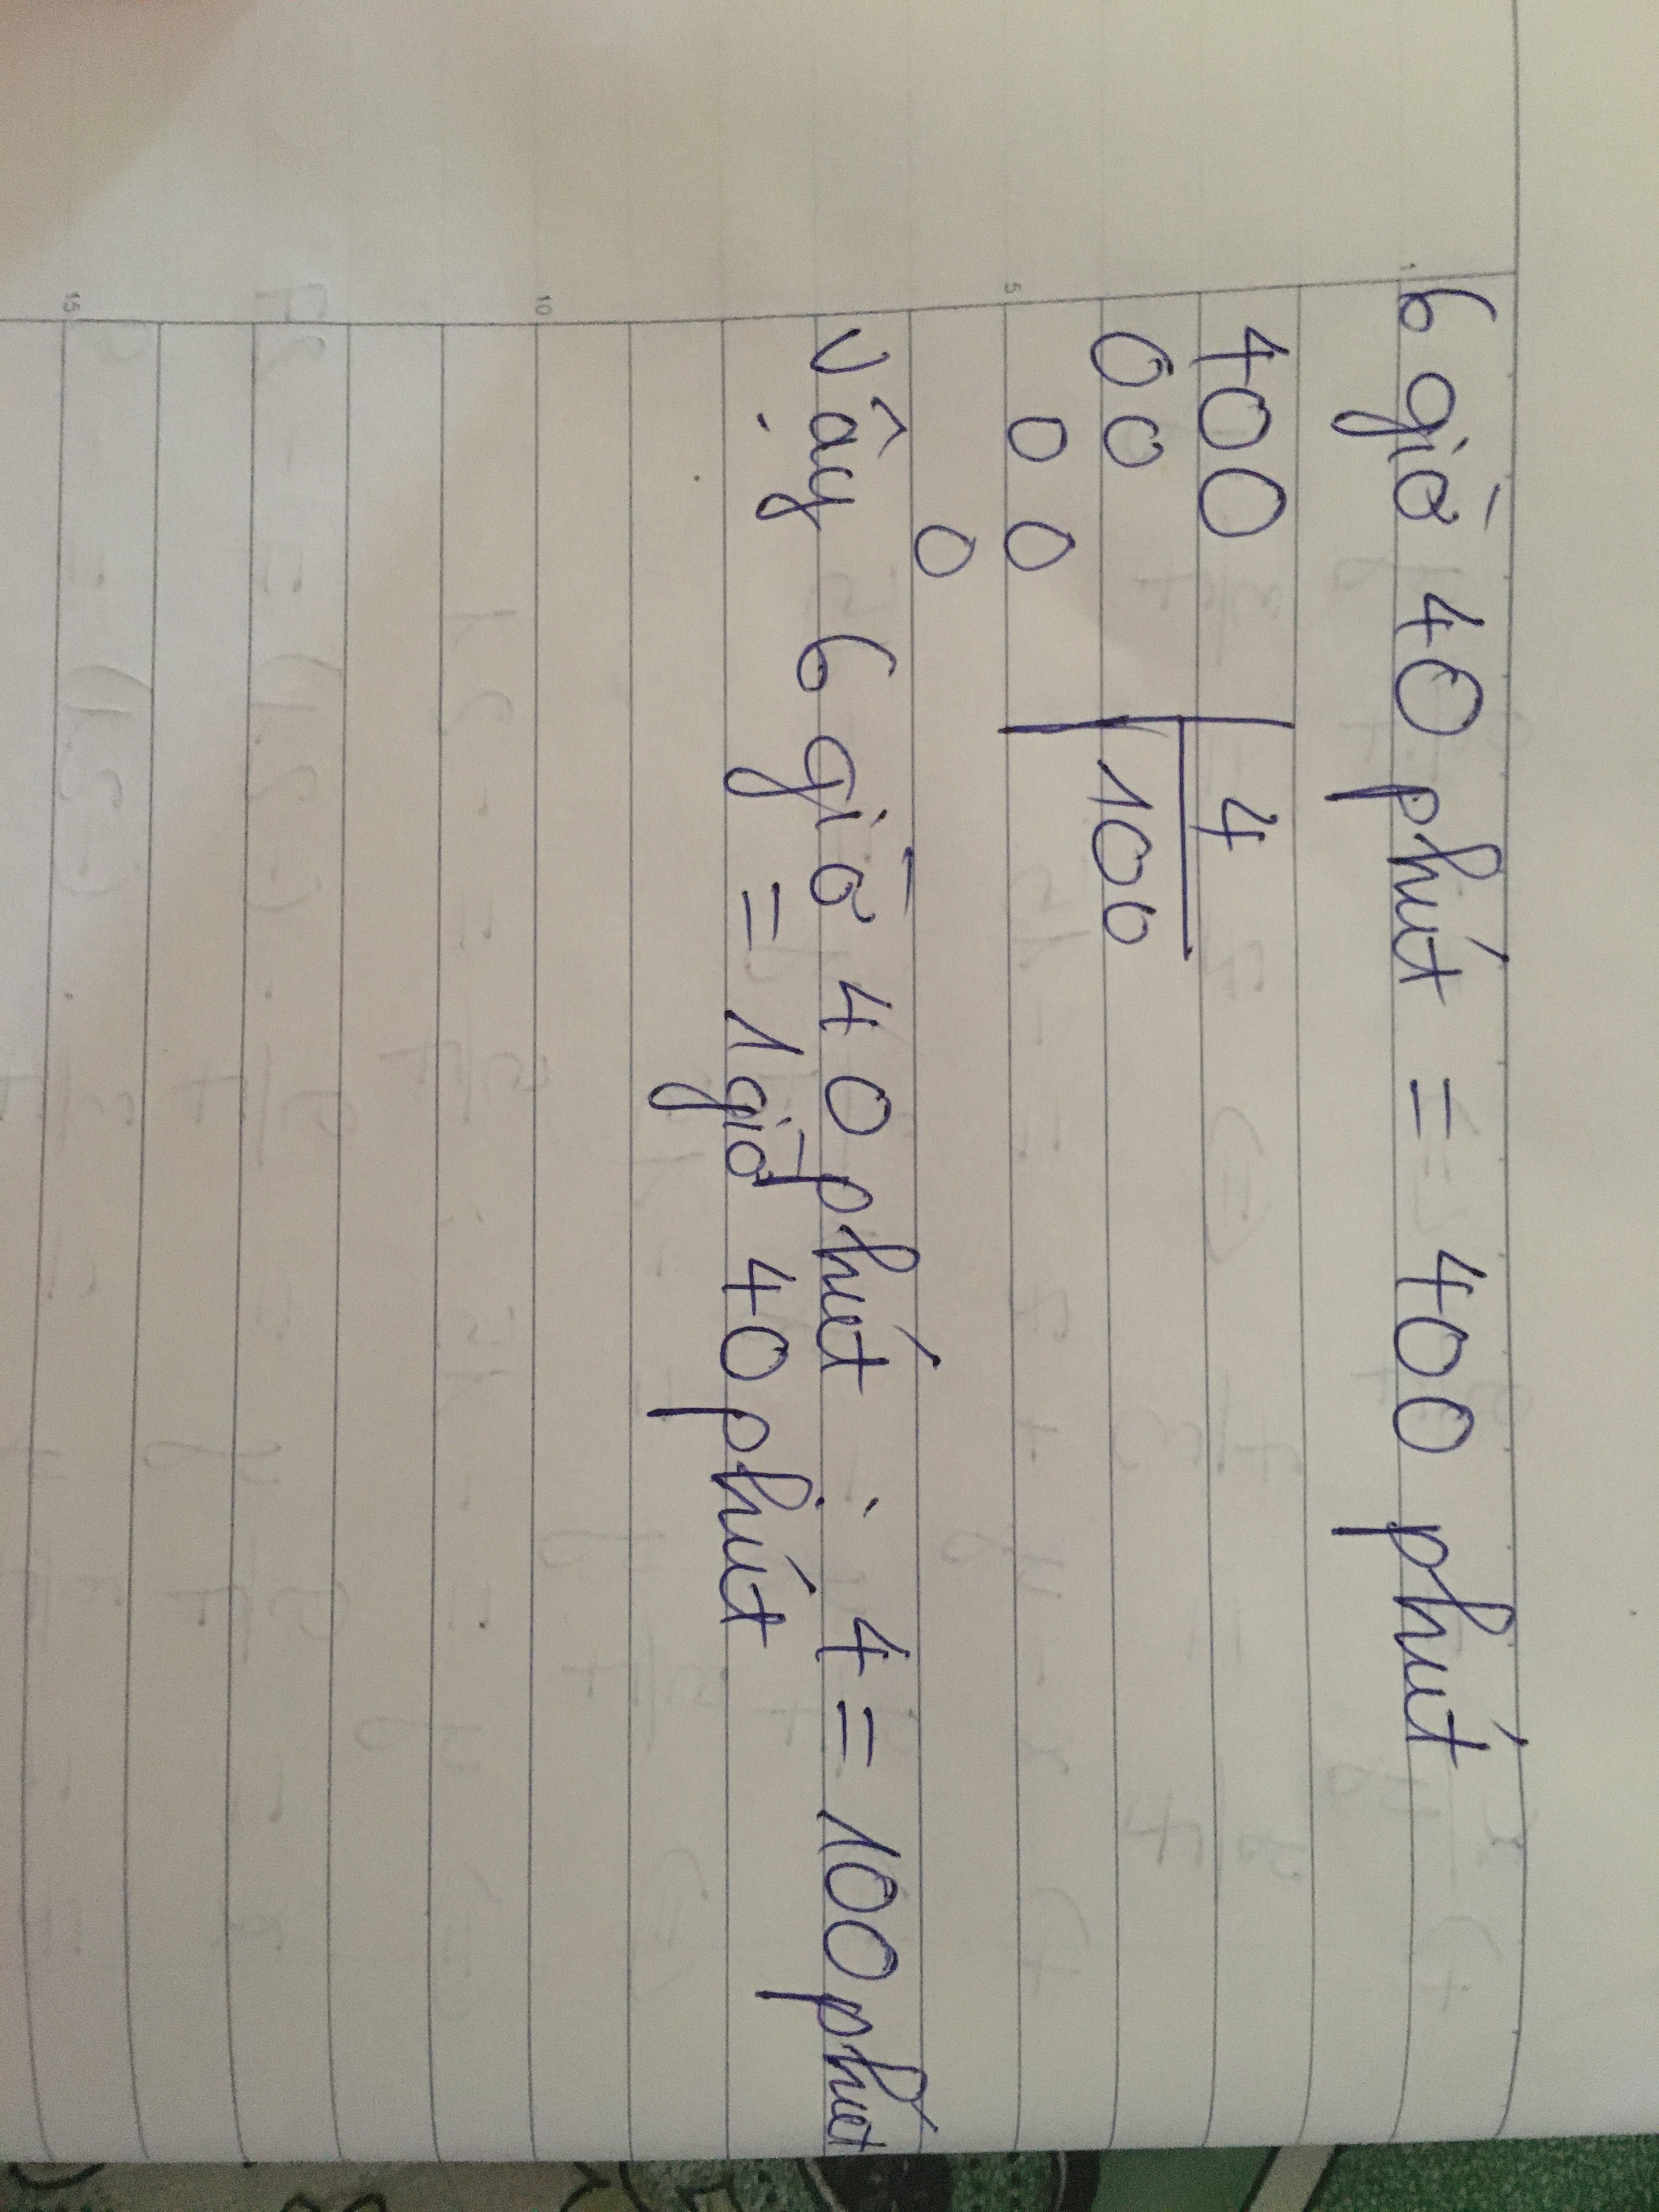 6 giờ 40 phút = 400 phút
400 4
00 100
00
0
Vậy 6 giờ 40 phút : 4 = 100 phút
= 1 giờ 40 phút
1
5
10
15